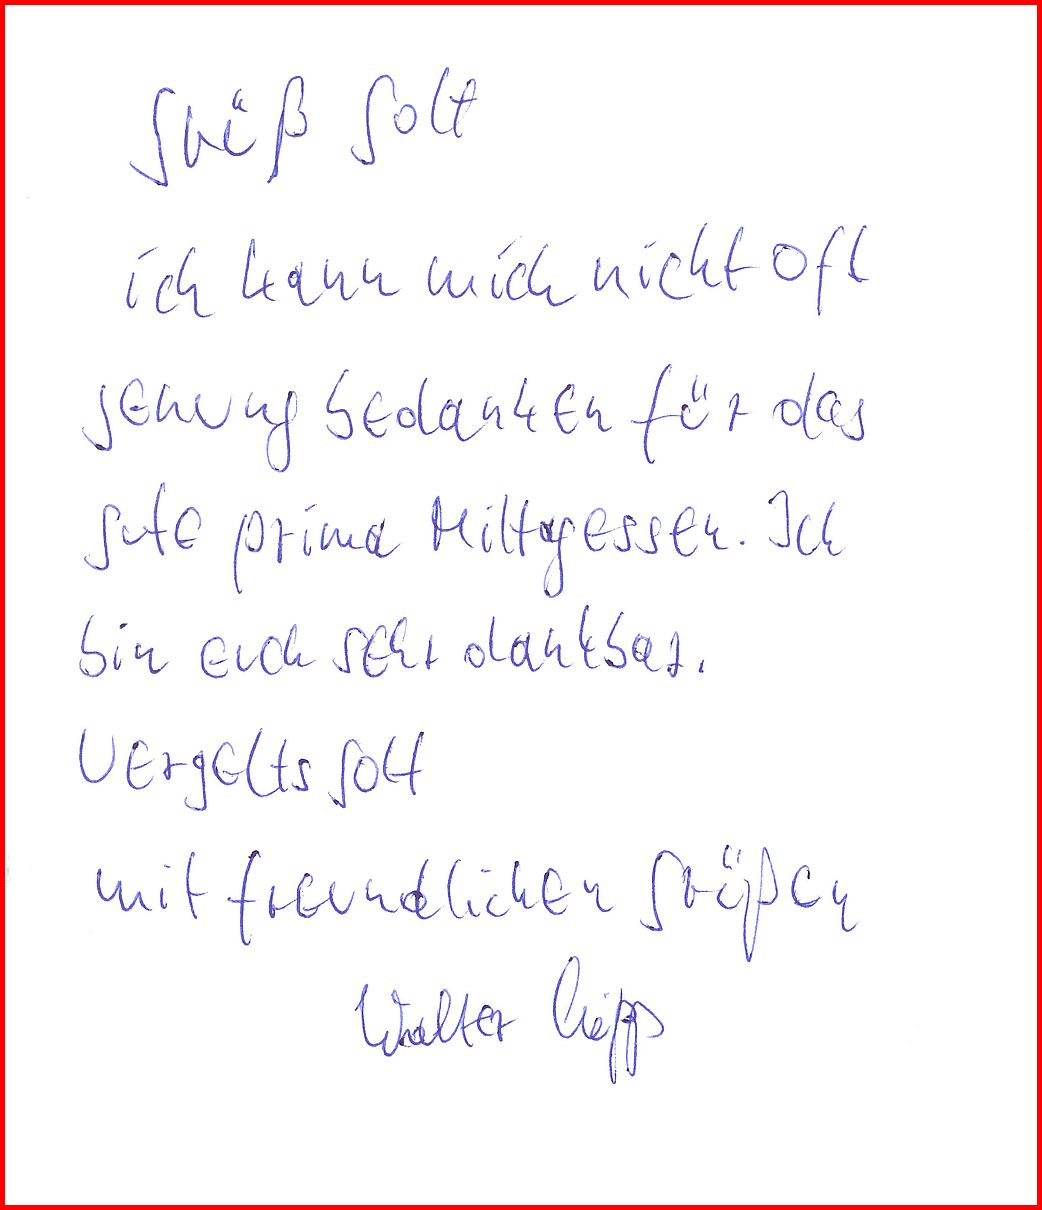 Grüß Gott
ich kann mich nicht oft
genung bedanken für das
gute prima Mittagessen. Ich
bin euch sehr dankbar.
Vergelts Gott
mit freundlichen Grüßen
Walter